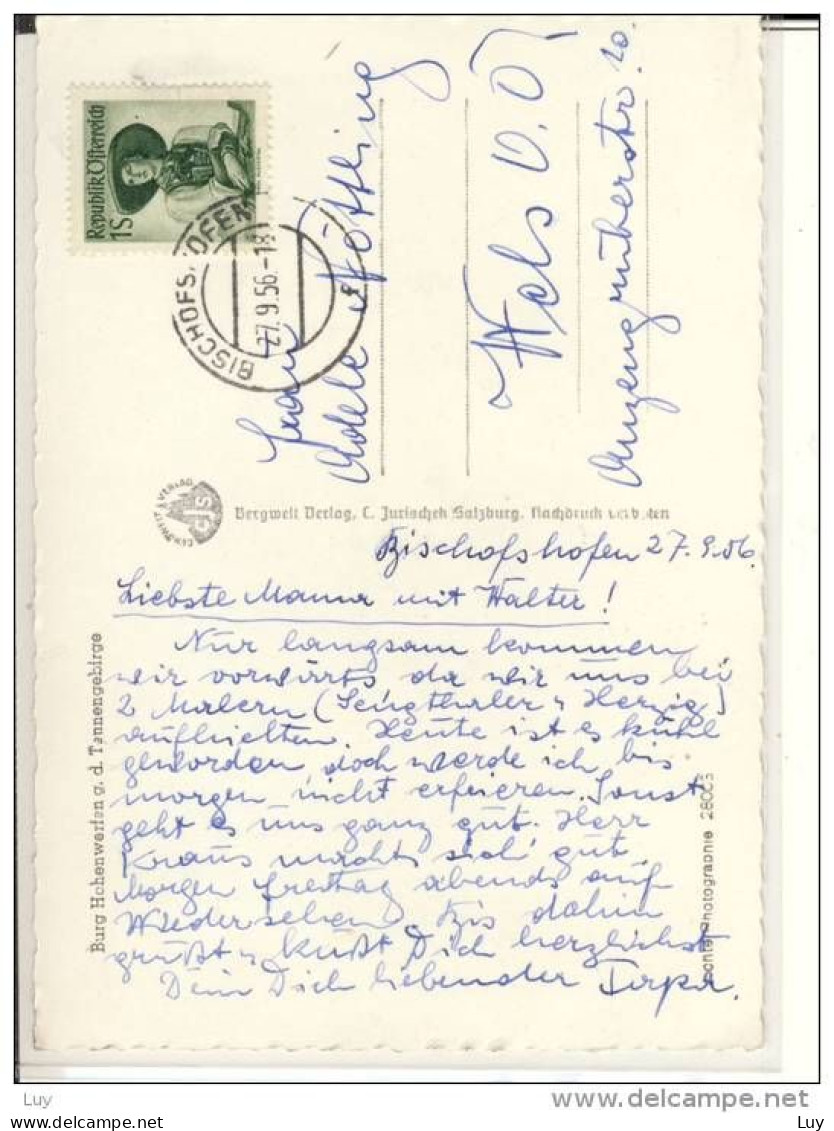 Republik Österreich
1S
BISCHOFSHOFEN
27.9.56.-18
Frau
Adele Nöttling
Wels O.Ö.
Anzengruberstr. 20.
Bergwelt Verlag, C. Jurischek Salzburg. Nachdruck verboten
Burg Hohenwerfen g. d. Tännengebirge
Bischofshofen 27.9.56.
Liebste Mama mit Walter!
Nur langsam kommen
wir vorwärts da wir uns bei
2 Malern (Sengthaler u Herzig)
aufhielten. Heute ist es kühl
geworden doch werde ich bis
morgen nicht erfrieren. Sonst
geht es uns ganz gut. Herr
Kraus macht sich gut.
Morgen Freitag abends auf
Wiedersehen. Bis dahin
grüßt u. küßt Dich herzlichst
Dein Dich liebender
Photographie 28003
Luy
delcampe.net
Luy